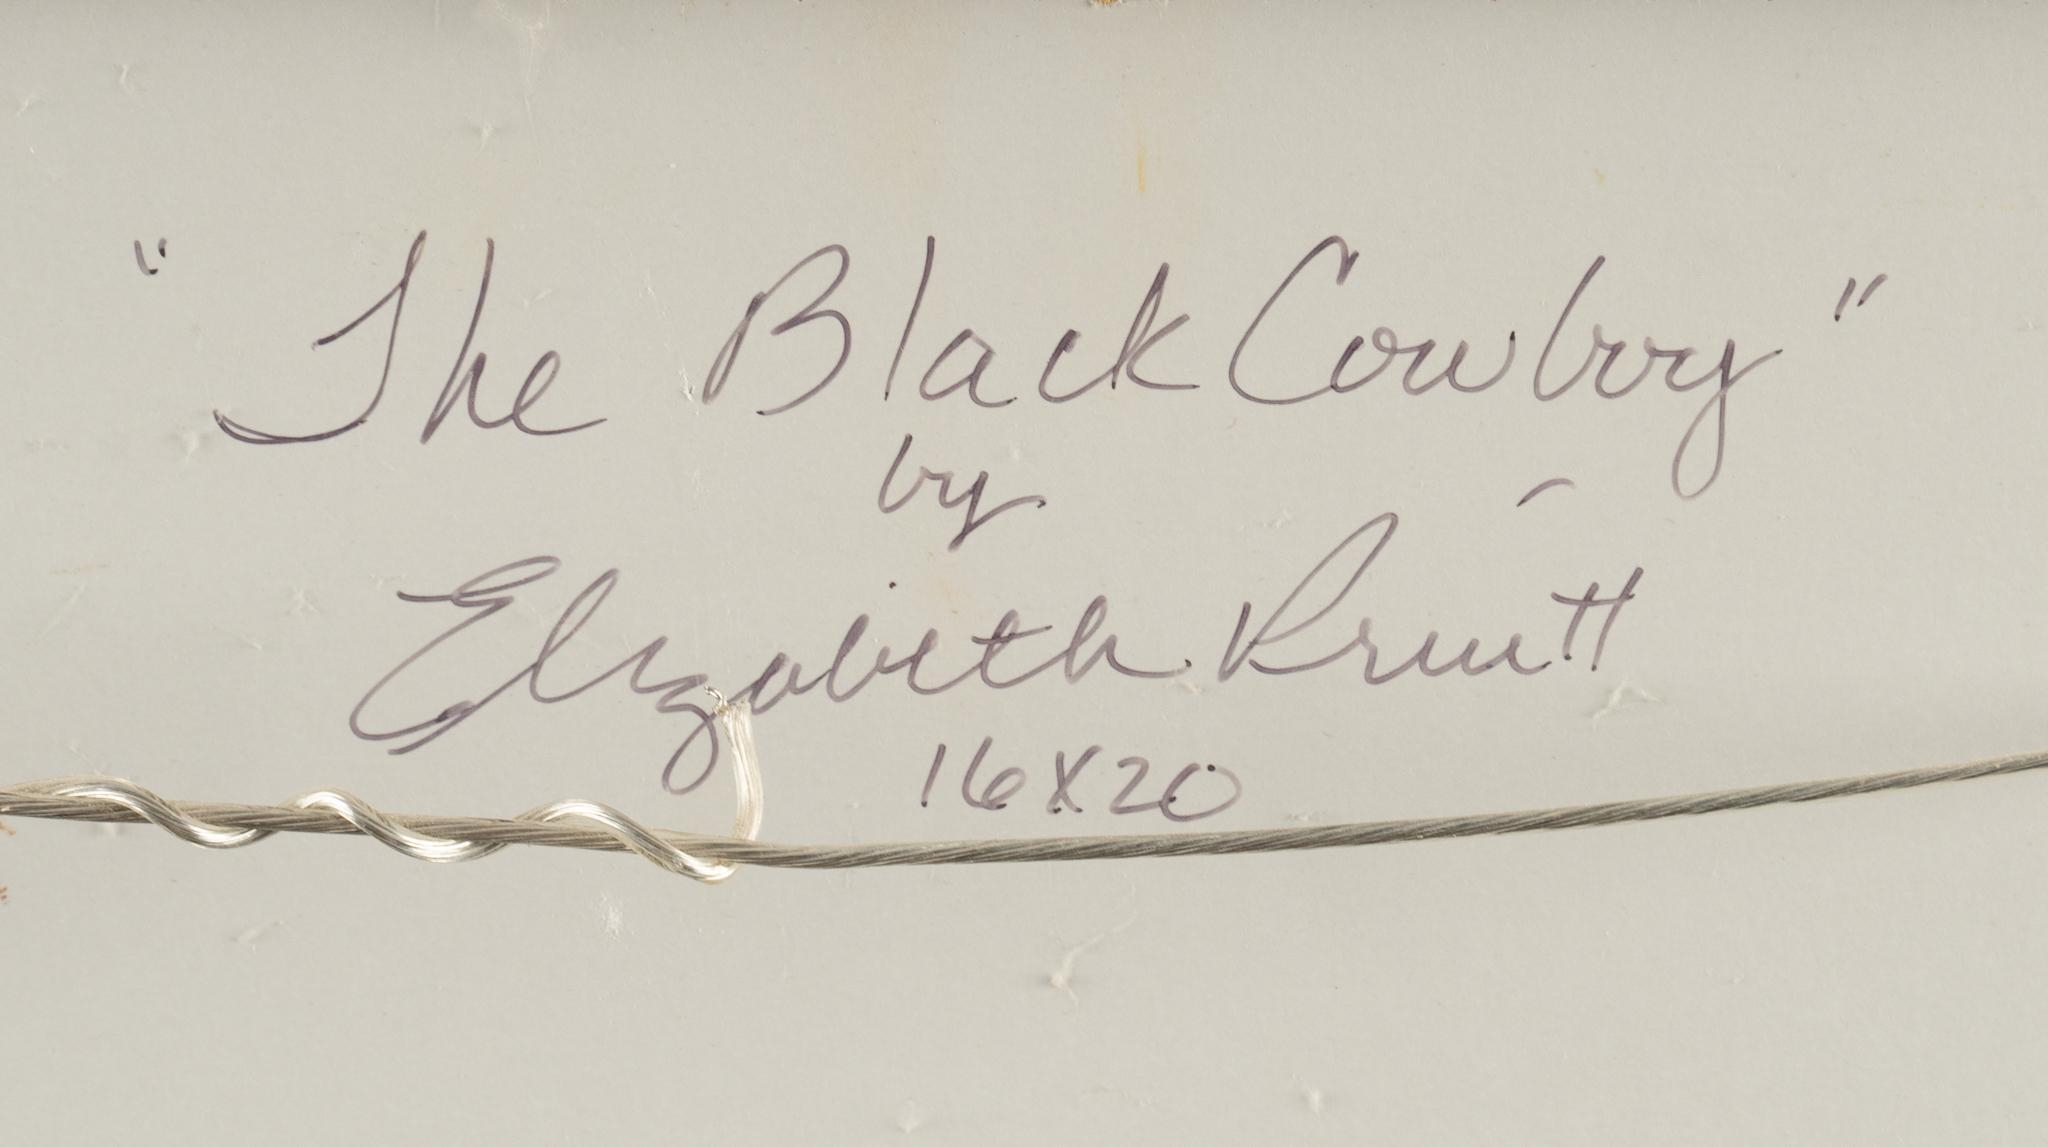 "The Black Cowboy"
by
Elizabeth Pruitt
16X20